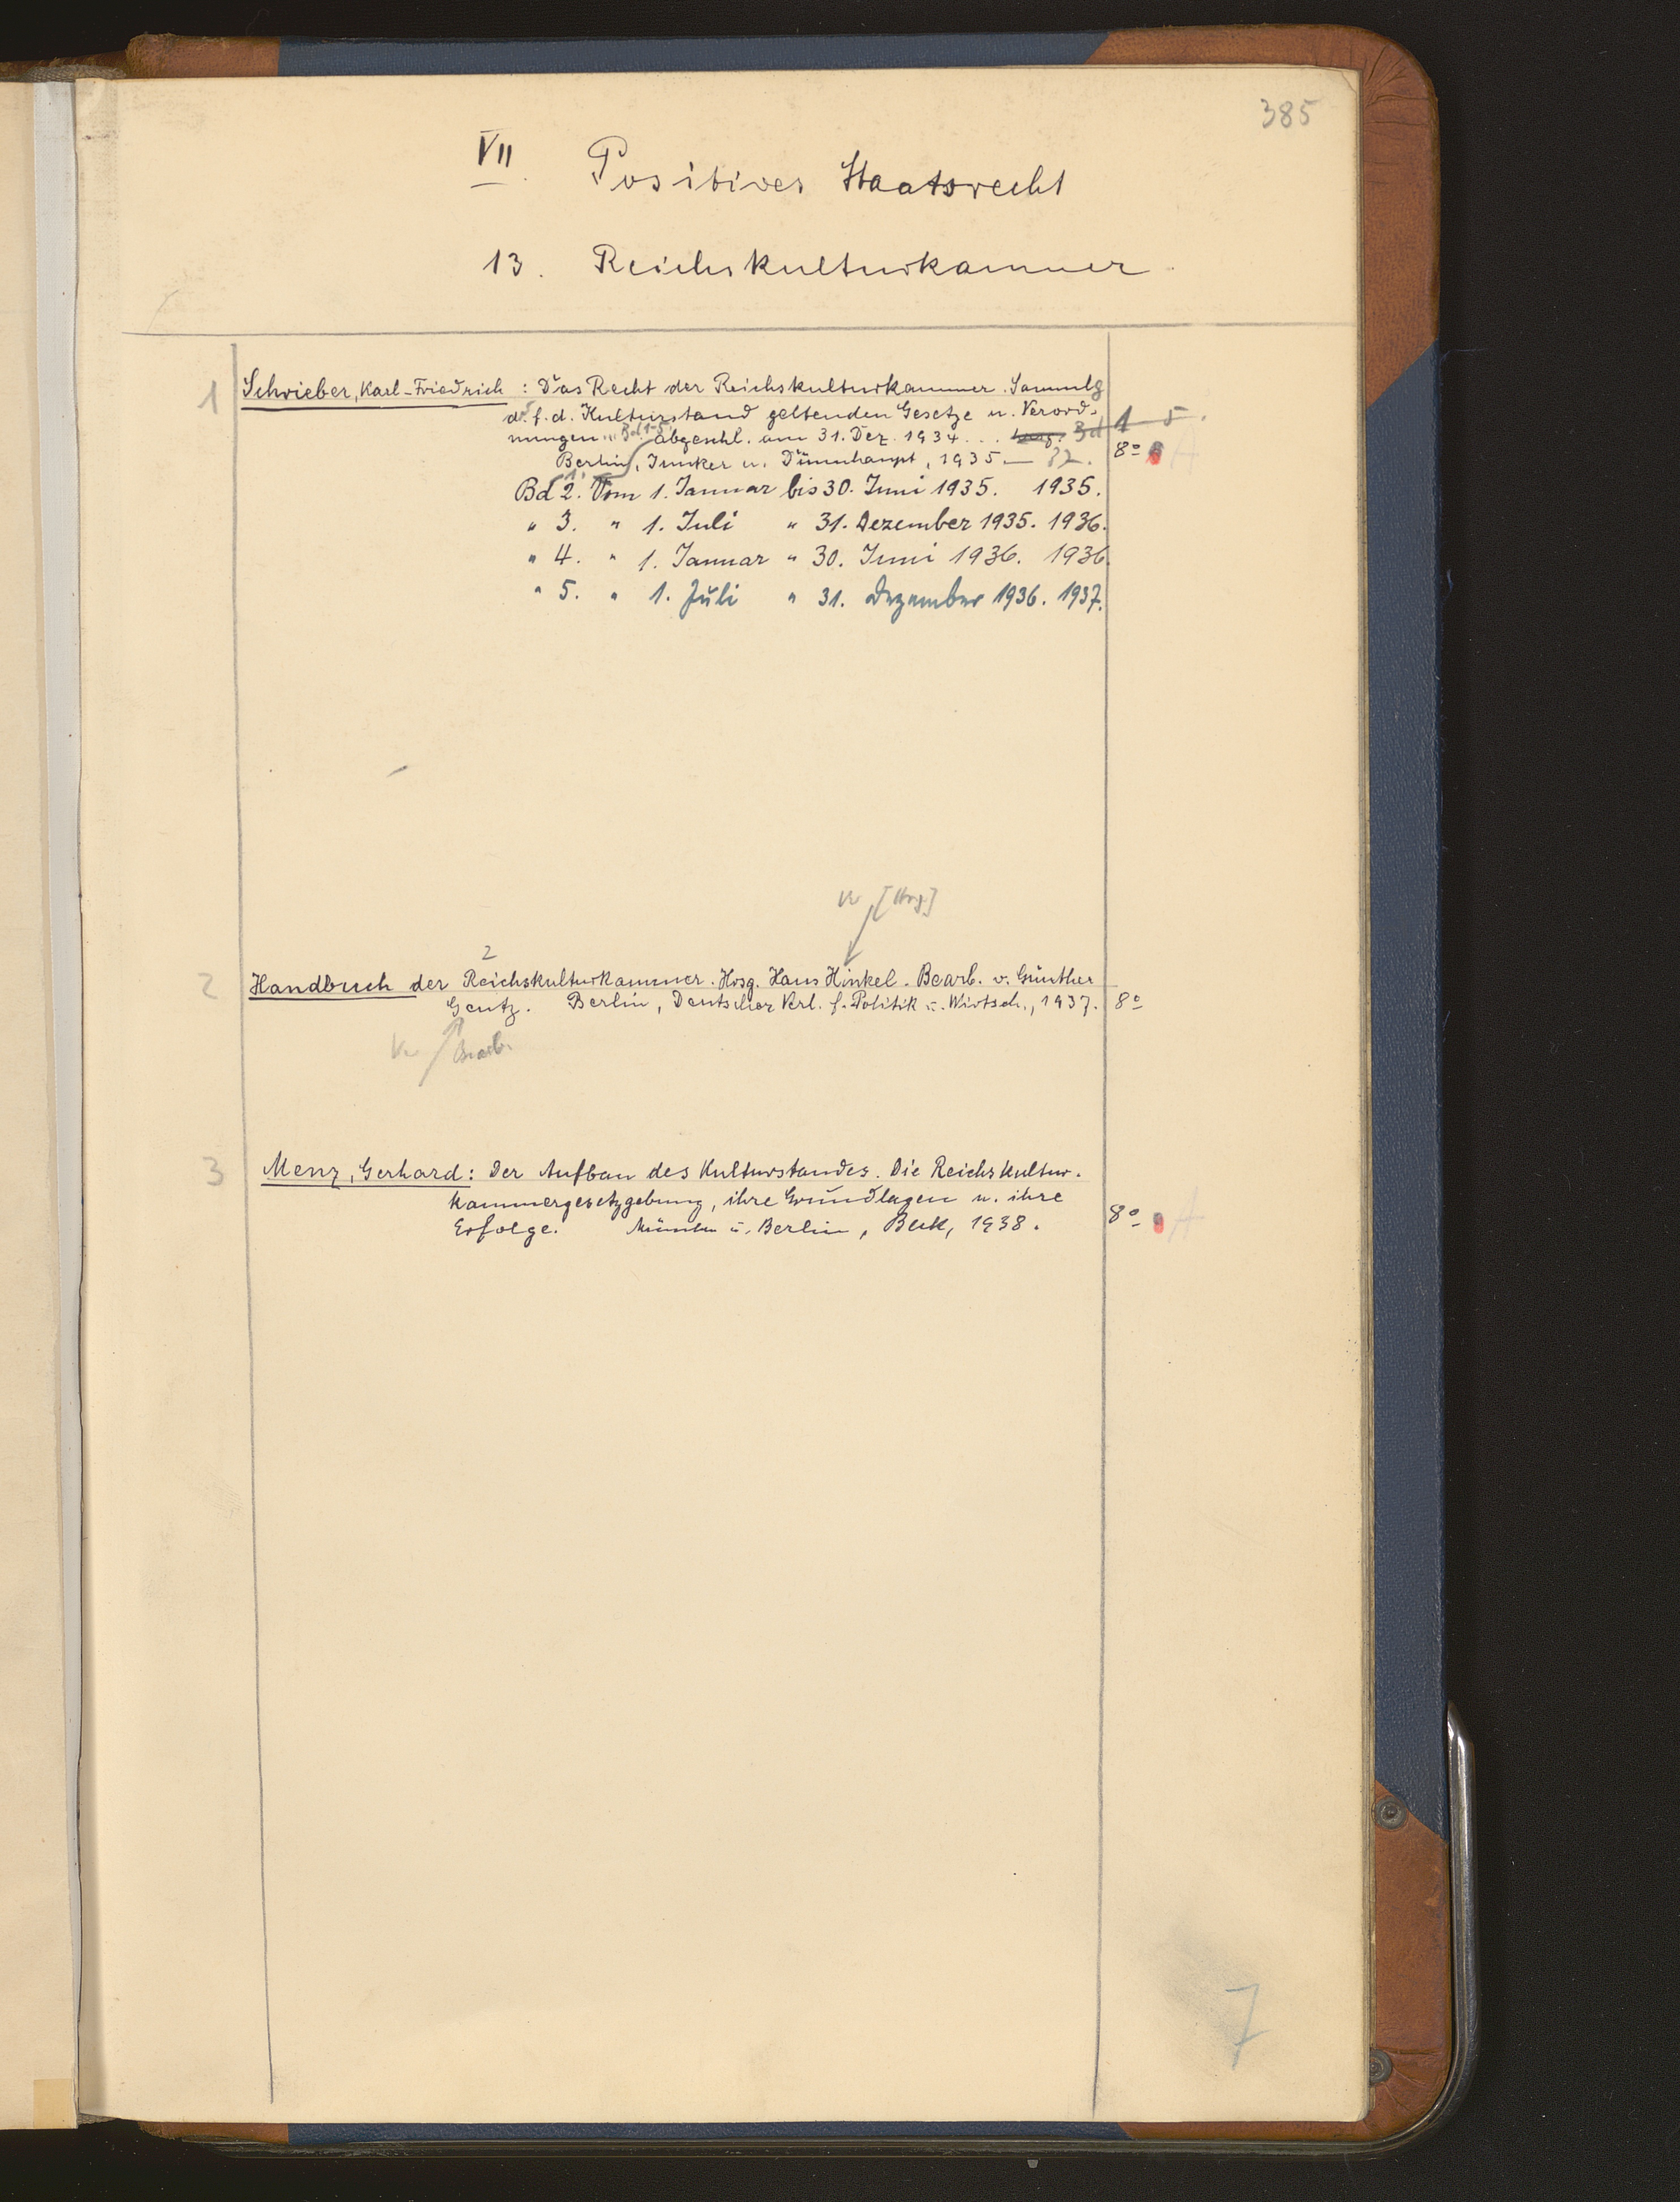 385
VII. Positives Staatsrecht
13. Reichskulturkammer.
1 Schrieber, Karl-Friedrich: Das Recht der Reichskulturkammer. Sammlg
d. f. d. Kulturstand geltenden Gesetze u. Verord-
nungen ... Bd 1-5. abgeschl. am 31. Dez. 1934 ... Bd 1-5.
Berlin, Junker u. Dünnhaupt, 1935 — 37. 8° A
Bd 2. Vom 1. Januar bis 30. Juni 1935. 1935.
" 3. " 1. Juli " 31. Dezember 1935. 1936.
" 4. " 1. Januar " 30. Juni 1936. 1936
" 5. " 1. Juli " 31. Dezember 1936. 1937.
[Hrsg]
2
2 Handbuch der Reichskulturkammer. Hrsg. Hans Hinkel. Bearb. v. Günther
Gentz. Berlin, Deutscher Verl. f. Politik u. Wirtsch., 1937. 8°
Bearb.
3 Menz, Gerhard: Der Aufbau des Kulturstandes. Die Reichskultur-
kammergesetzgebung, ihre Grundlagen u. ihre
Erfolge. München u. Berlin, Beck, 1938. 8° A
7